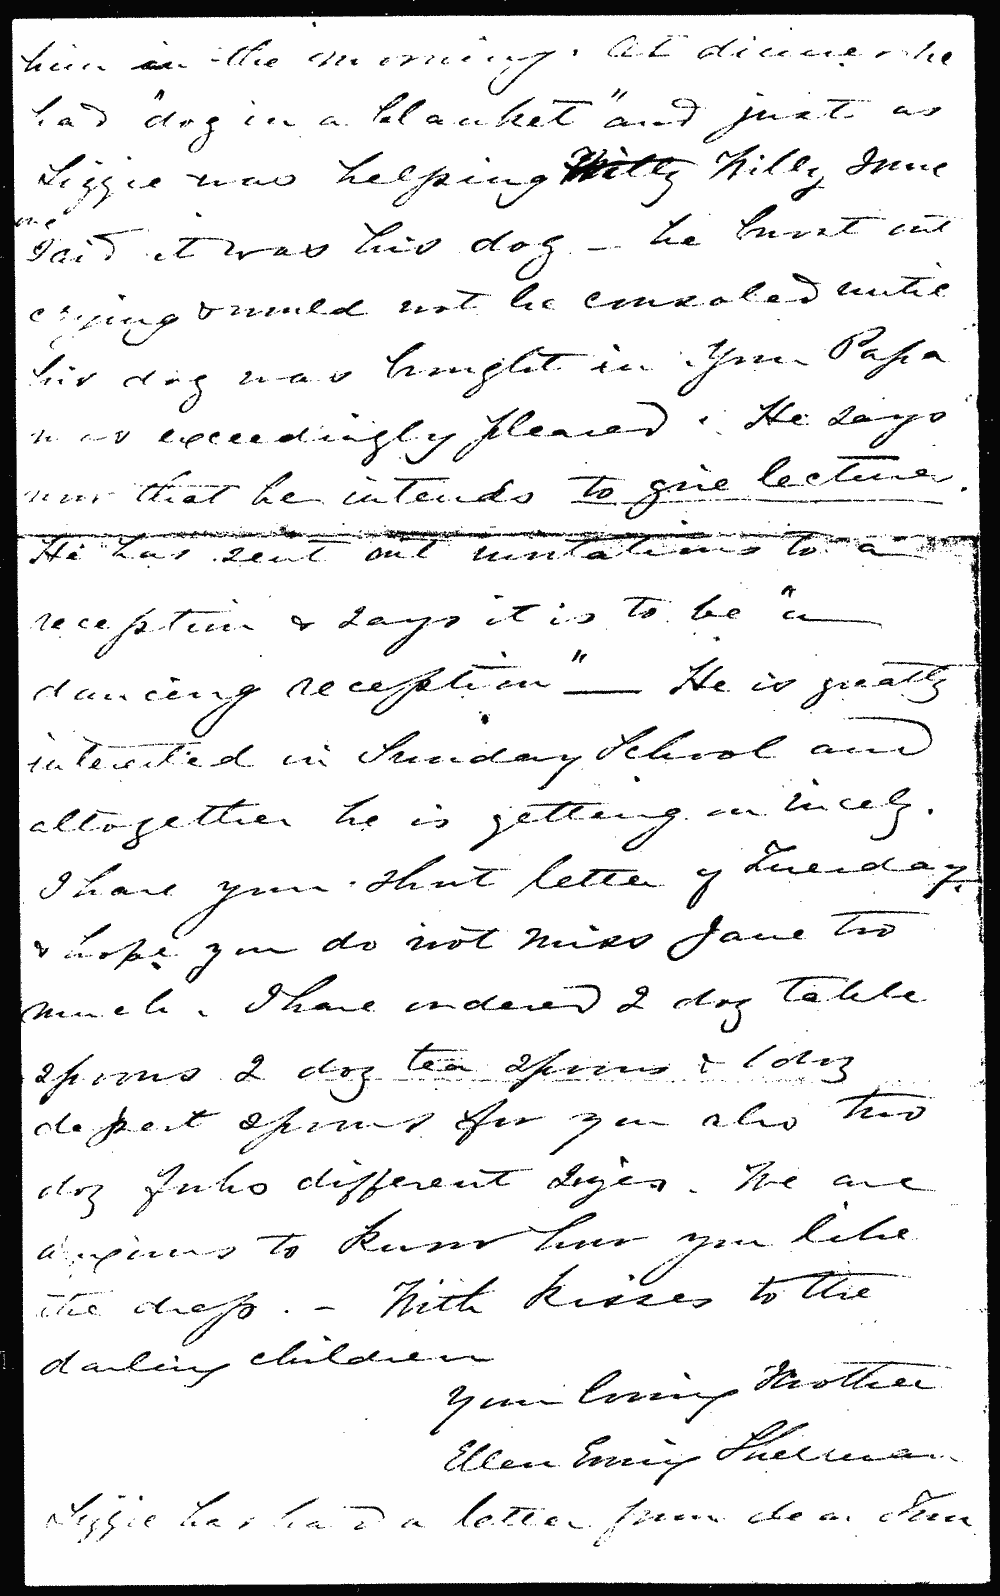 him in the morning. At dinner he
had "dog in a blanket" and just as
Lizzie was helping Willy Some
one
said it was his dog – he burst out
crying & would not be consoled until
his dog was bought in. Your Papa
was exceedingly pleased. He says
now that he intends to give lectures.
He has sent out invitations to a
reception & says it is to be "a
dancing reception" — He is greatly
interested in Sunday School and
altogether he is getting on nicely.
I have your short letter of Tuesday,
& hope you do not miss Jane too
much. I have ordered 2 doz table
spoons 2 doz tea spoons & 1 doz
desert spoons for you also two
doz forks different sizes. We are
anxious to know how you like
the dress. – With kisses to the
darling children
Your loving Mother
Ellen Ewing Sherman
Lizzie has had a letter from dear Tom